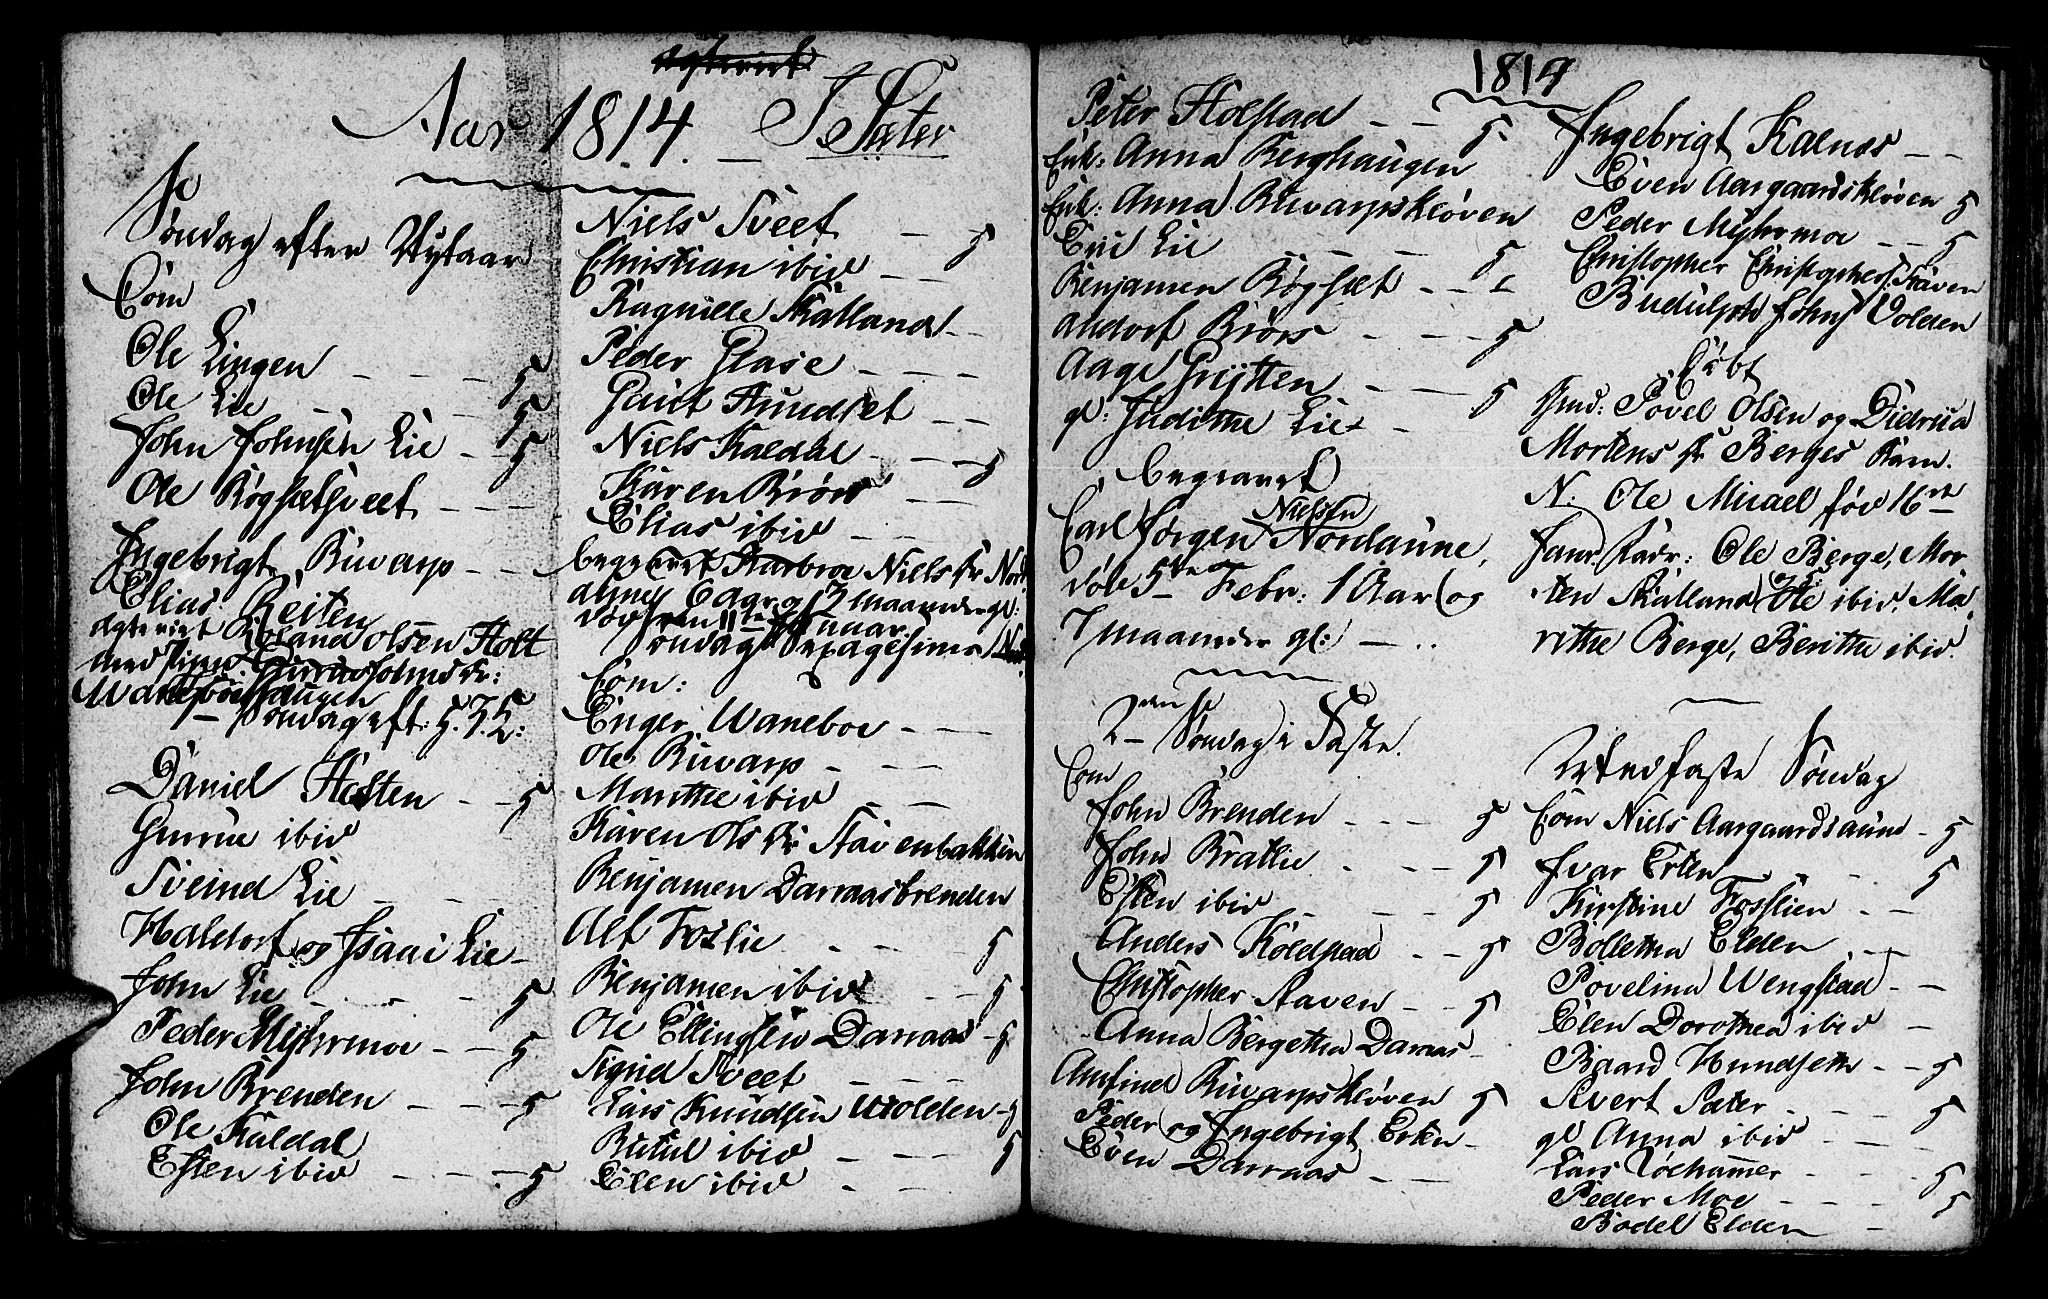 Aar 1814. I Sæter
Søndag efter Nytaar
Com
Ole Lingen - - - - 5
Ole Lie - - - - 5
John Johnsen Lie - - 5
Ole Røgsætsveet - - -
Ingebrigt Riwarp - - -
Elias Reiten
Roland Olsen Holt
med
Søndag eft: H. 3 K:
Daniel Hesten - - 5
Gurrue ibid
Sveind Lie - - -
Haldorf og Isaac Lie -
John Lie - - - - 5
Peder Myhrmoe - - 5
John Brenden - - - 5
Ole Kaldal
Esten ibid - - - - 5
Niels Sveet - - 5
Christian ibid - -
Ragnille Skatland -
Peder Glase - - - -
Gurit Hundset - -
Niels Kaldal - - - 5
Karen Brørs - -
Elias ibid - - -
begravet Niels Dr
6 Aar og 3 maaneder gl:
død den 11te Januar
Søndag Sexagesima
Com:
Enger Waneboe - - -
Ole Riwarp - - -
Marithe ibid - - -
Karen Ols Dr Staienbakken
Benjamen Darraasbrenden
Alf Foslie - - - 5
Benjamen ibid - - 5
Ole Ellingsen Darraas - 5
Sigrid Sveet - - - -
Lars Knudsen Wolden - 5
Rutul ibid - - - 5
Elen ibid - - -
1814
Peter Holstad - - - 5
Enk: Anna Berghaugen
Enk: Anna Riwarpskløven
Eric Lie - - - 5
Benjamen Røgsæt - - -
Aldorf Brørs - - - 5
Aage Grytten - - - 5
gl: Judithe Lie - -
begravet
Nielsen
Carl Jørgen Nordaune,
død 5te Febr: 1 Aar og
7 maaneder gl: - . .
2den Søndag i Faste.
Com
John Brenden - - - 5
John Bratlie - - - 5
Esten ibid - - - - 5
Anders Koldstad - - 5
Christopher Staven - - 5
Anna Bergetha Darraas -
Amfind Riwarpskløven 5
Peder og Ingebrigt Erten -
Even Darraas - - -
Ingebrigt Kalnæs - -
Even Aargaardskløven 5
Peder Myhrmoe - - 5
Christopher Christophers: Staven
Rudulph Johns: Volden
Døbt
Gmd: Povel Olsen og Didricia
Mortens Dr Berges Barn.
N. Ole Micael fød 16de
Janr. Fadr: Ole Berge, Mor-
ten Skatland, Ole ibid. Ma-
rithe Berge, Berithe ibid.
Midfaste Søndag
Com Niels Aargaardsaune - 5
Ivar Erten - - - 5
Kirstine Fosslien - -
Bolletha Elden - - -
Povelina Wengstad - -
Elen Dorothea ibid -
Baard Hundsem - - 5
Sivert Sæter - - - 5
gl Anna ibid - - -
Lars Lochammer - - - 5
Peder Moe - - - - 5
Bodel Elden -